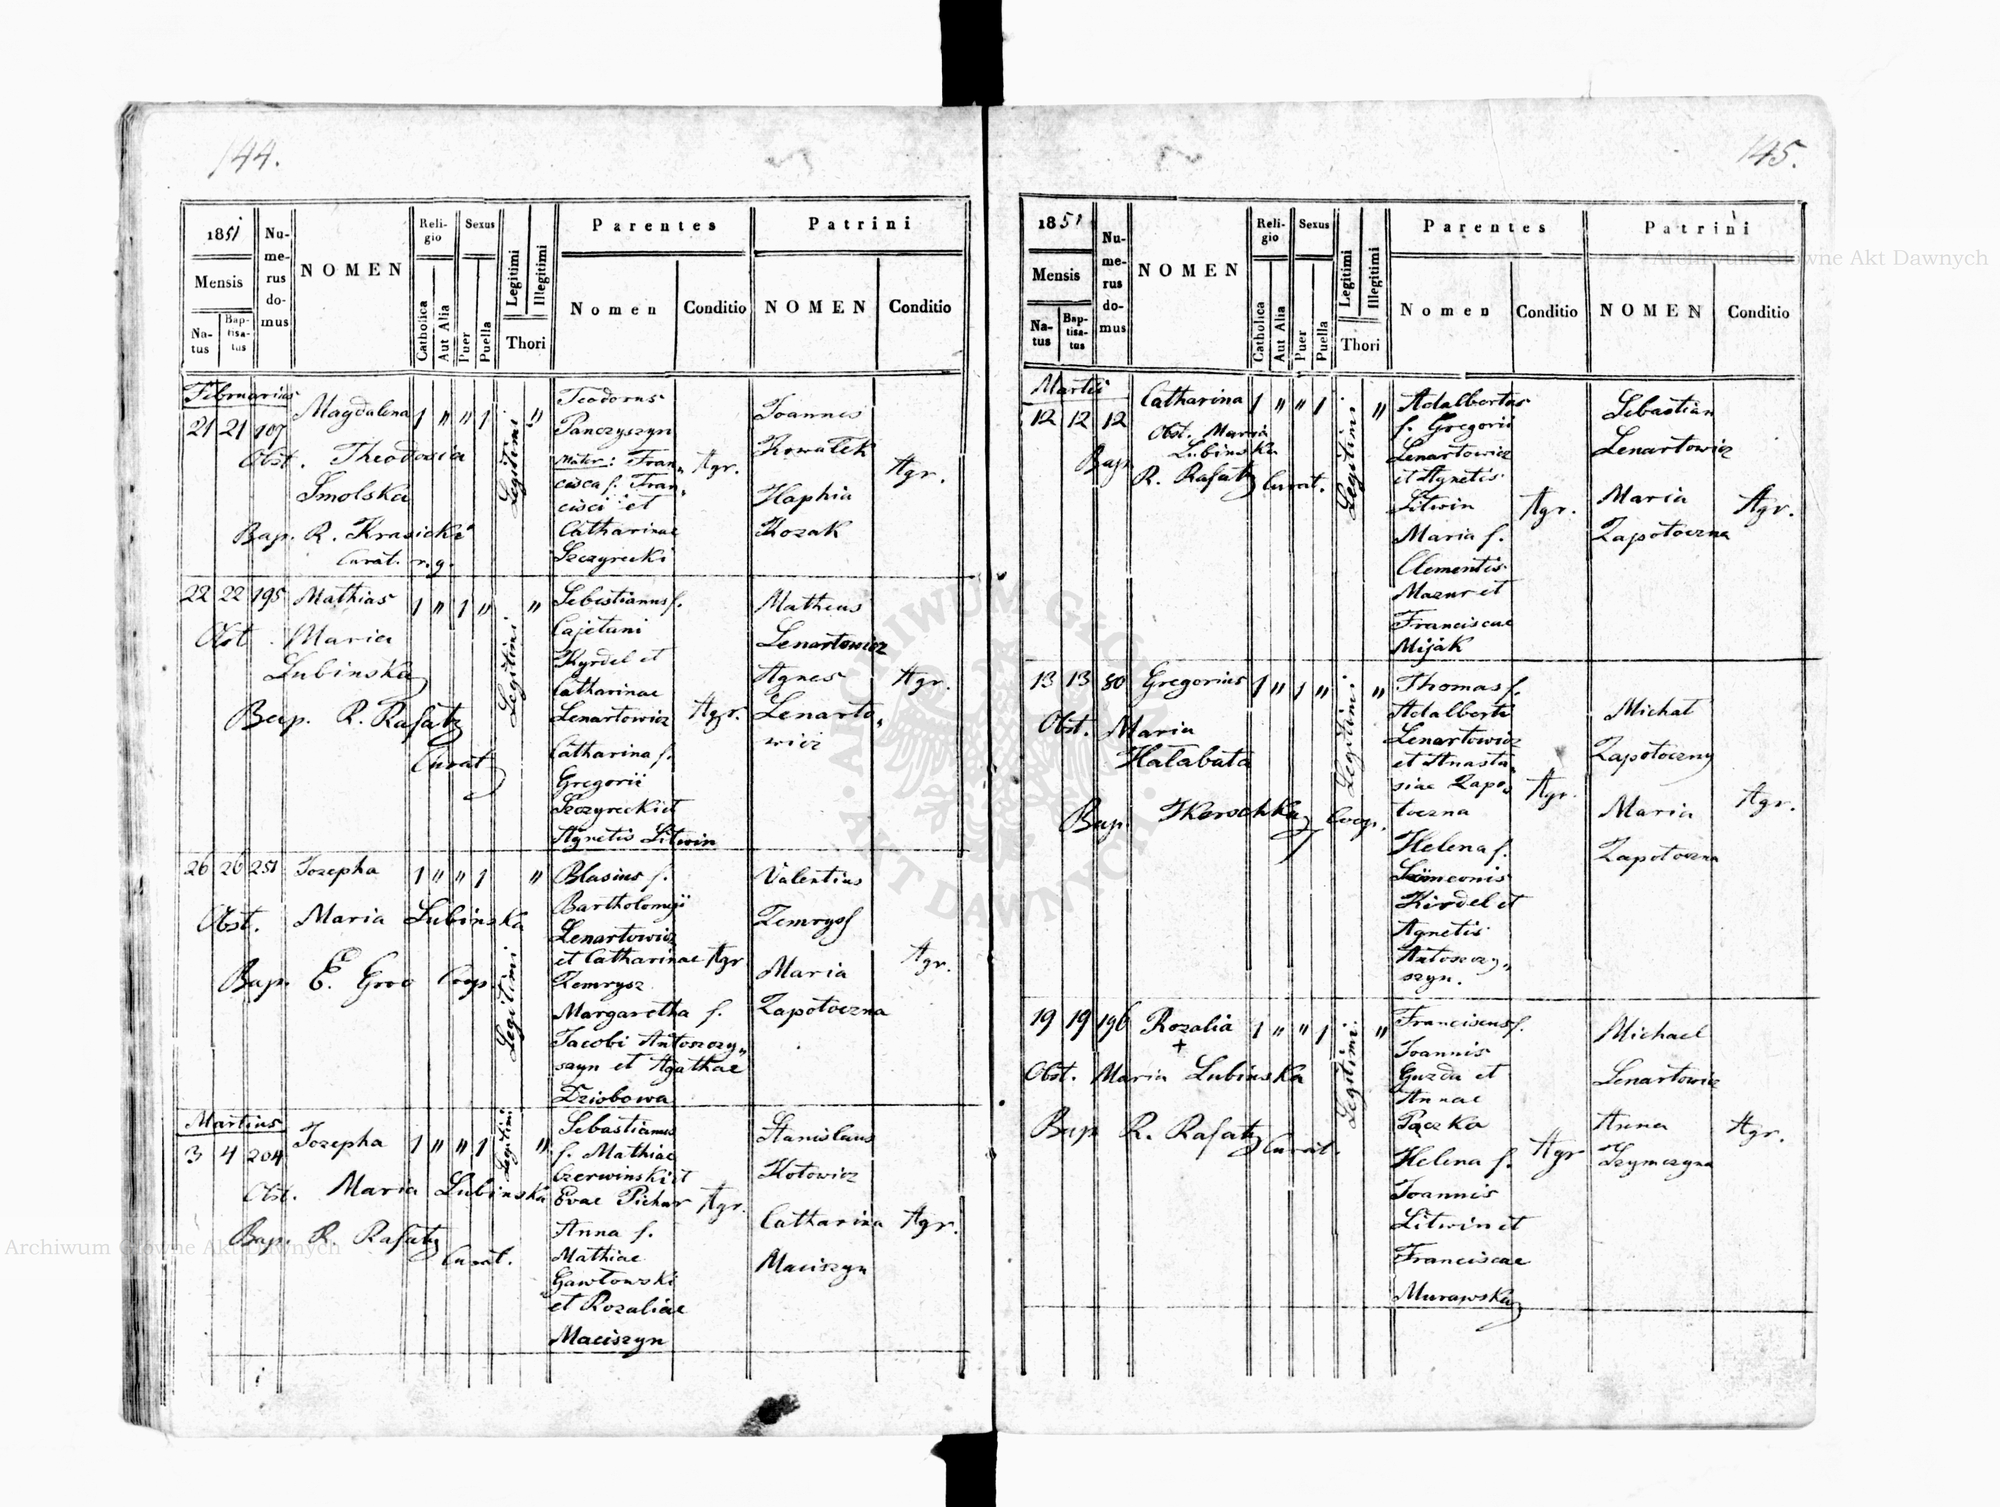 144.
1851
Mensis
Natus
Baptisatus
Numerus domus
NOMEN
Religio
Catholica
Aut Alia
Sexus
Puer
Puella
Legitimi
Illegitimi
Thori
Parentes
Nomen
Conditio
Patrini
NOMEN
Conditio
Februarius
21 21 107 Magdalena 1 " " 1 Legitimi "
Obst. Theodosia
Smolska
Bap. R. Krasicki
Curat. r.g.
Teodorus
Panczyszyn
Mater: Fran„
cisca f. Fran„
cisci et
Catharinae
Szczyrecki
Agr.
Joannes
Kowalek
Haphia
Kozak
Agr.
22 22 195 Mathias 1 " 1 " Legitimi "
Obst. Maria
Lubinska
Bap. R. Rafatz
Curat
Sebestianus f.
Cajetani
Kyrdel et
Catharinae
Lenartowicz
Catharina f.
Gregorii
Szczyrecki et
Agnetis Litwin
Agr.
Matheus
Lenartowicz
Agnes
Lenarto„
wicz
Agr.
26 26 251 Jozepha 1 " " 1 Legitimi "
Obst. Maria Lubinska
Bap. E. Groo Coop.
Blasius f.
Bartholomeji
Lenartowicz
et Catharinae
Zemrysz
Margaretha f.
Jacobi Antoszczy„
szyn et Agathae
Dziobowa
Agr
Valentius
Zemrysz
Maria
Zapotoczna
Agr.
Martius
3 4 204 Jozepha 1 " " 1 Legitimi "
Obst. Maria Lubinska
Bap. R. Rafatz
Curat.
Sebastianus
f. Mathiae
Czerwinski et
Evae Pichur
Anna f.
Mathiae
Gawłowski
et Rozaliae
Maciszyn
Agr.
Stanislaus
Kotowicz
Catharina
Maciszyn
Agr.
145.
1851
Mensis
Natus
Baptisatus
Numerus domus
NOMEN
Religio
Catholica
Aut Alia
Sexus
Puer
Puella
Legitimi
Illegitimi
Thori
Parentes
Nomen
Conditio
Patrini
NOMEN
Conditio
Martii
12 12 12 Catharina 1 " " 1 Legitimi "
Obst. Maria
Lubinska
Bap.
R. Rafatz Curat.
Adalbertus
f. Gregorii
Lenartowicz
et Agnetis
Litwin
Maria f.
Clementis
Mazur et
Franciscae
Mijak
Agr.
Sebastian
Lenartowicz
Maria
Zapotoczna
Agr.
13 13 80 Gregorius 1 " 1 " Legitimi "
Obst. Maria
Hałabuta
Bap. Coop.
Thomas f.
Adalberti
Lenartowicz
et Anasta„
siae Zapo„
toczna
Helena f.
Simeonis
Kirdel et
Agnetis
Antoszczy„
szyn.
Agr.
Michał
Zapotoczny
Maria
Zapotoczna
Agr.
19 19 196 Rozalia 1 " " 1 Legitimi "
+
Obst. Maria Lubinska
Bap R. Rafatz Curat.
Franciscus f.
Joannis
Guzda et
Annae
Paczka
Helena f.
Joannis
Litwin et
Franciscae
Murawska
Agr
Michael
Lenartowicz
Anna
Szymczyna
Agr.
ARCHIWUM GŁÓWNE AKT DAWNYCH
Archiwum Główne Akt Dawnych
Archiwum Główne Akt Dawnych